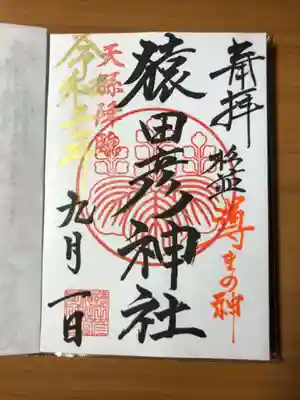 奉拝
導きの神
猿田彦神社
天孫降臨
令和
九月一日